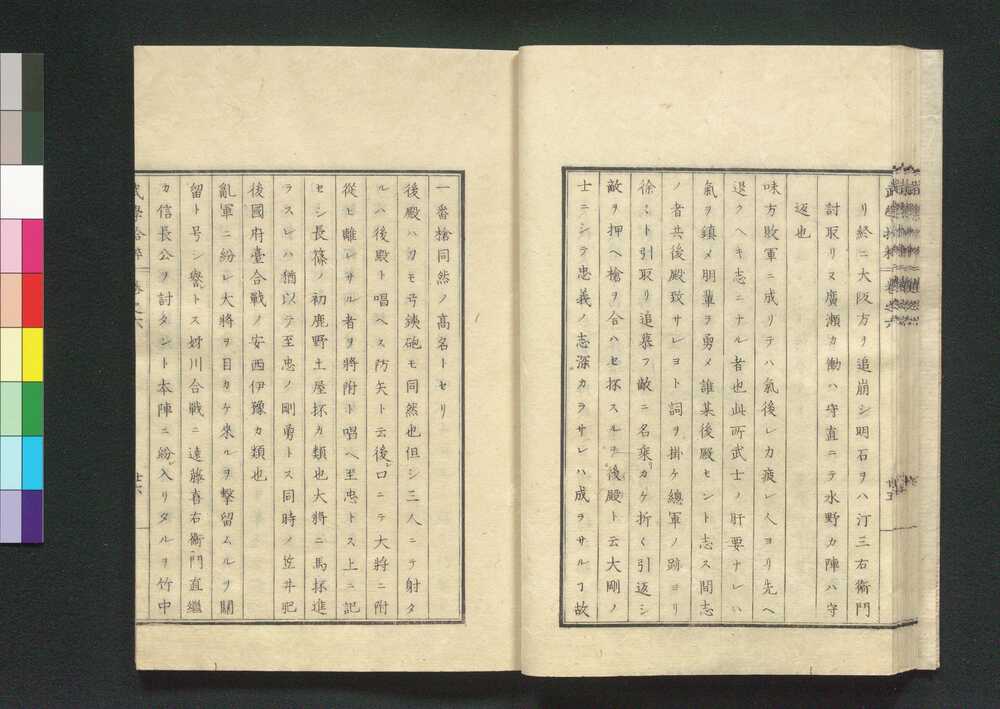 リ終ニ大阪方リ追崩シ明石ヲハ汀三右衛門
討取リス廣瀬カ働ハ守直ニテ水野カ陣ハ守
返也
味方敗軍ニ成リテハ氣後レカ疲レ人ヨリ先ヘ
退クヘキ志ニナル者也此所武士ノ肝要ナレハ
氣ヲ鎮メ朋輩ヲ勇メ誰某後殿セント志ス間志
ノ者共後殿致サレヨト詞ヲ掛ケ總軍ノ跡ヨリ
徐々ト引取リ追慕フ敵ニ名乗カケ折々引返シ
敵ヲ押ヘ槍ヲ合ハセ抔スルヲ後殿ト云大剛ノ
士ニシテ忠義ノ志深カラサレハ成ラサルヿ故
一番槍同然ノ高名トセリ
後殿ハ刀モ弓鉄砲モ同然也但シ三人ニテ射タ
ルハ後殿ト唱ヘス防矢ト云後口ニテ大將ニ附
從ヒ離レサル者ヲ將附ト唱ヘ至忠トス上ニ記
セシ長篠ノ初鹿野土屋抔カ類也大將ニ馬抔進
ラスレハ猶以テ至忠ノ剛勇トス同時ノ笠井肥
後國府臺合戰ノ安西伊豫カ類也
亂軍ニ紛レ大將ヲ目カケ来ルヲ撃留ムルヲ關
留ト号シ譽トス姉川合戰ニ遠藤喜右衛門直繼
カ信長公ヲ討タント本陣ニ紛入リタルヲ竹中
武學拾粹 卷之六 廿六